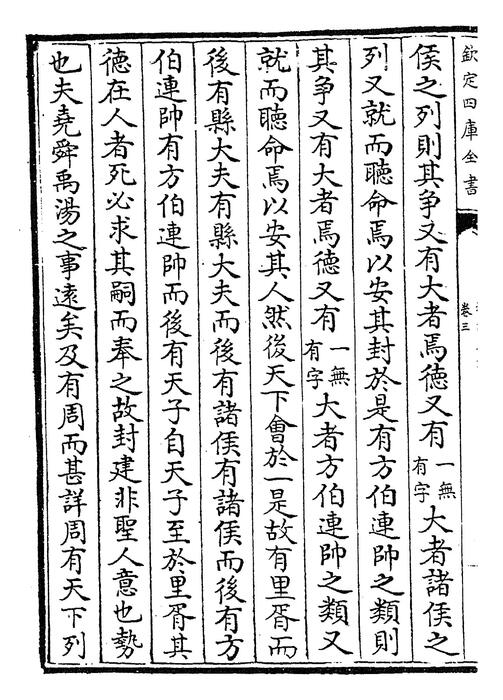 欽定四庫全書
卷三
侯之列則其争又有大者焉德又有一無有字大者諸侯之
列又就而聽命焉以安其封於是有方伯連帥之類則
其争又有大者焉德又有一無有字大者方伯連帥之類又
就而聽命焉以安其人然後天下會於一是故有里胥而
後有縣大夫有縣大夫而後有諸侯有諸侯而後有方
伯連帥有方伯連帥而後有天子自天子至於里胥其
德在人者死必求其嗣而奉之故封建非聖人意也勢
也夫堯舜禹湯之事逺矣及有周而甚詳周有天下列